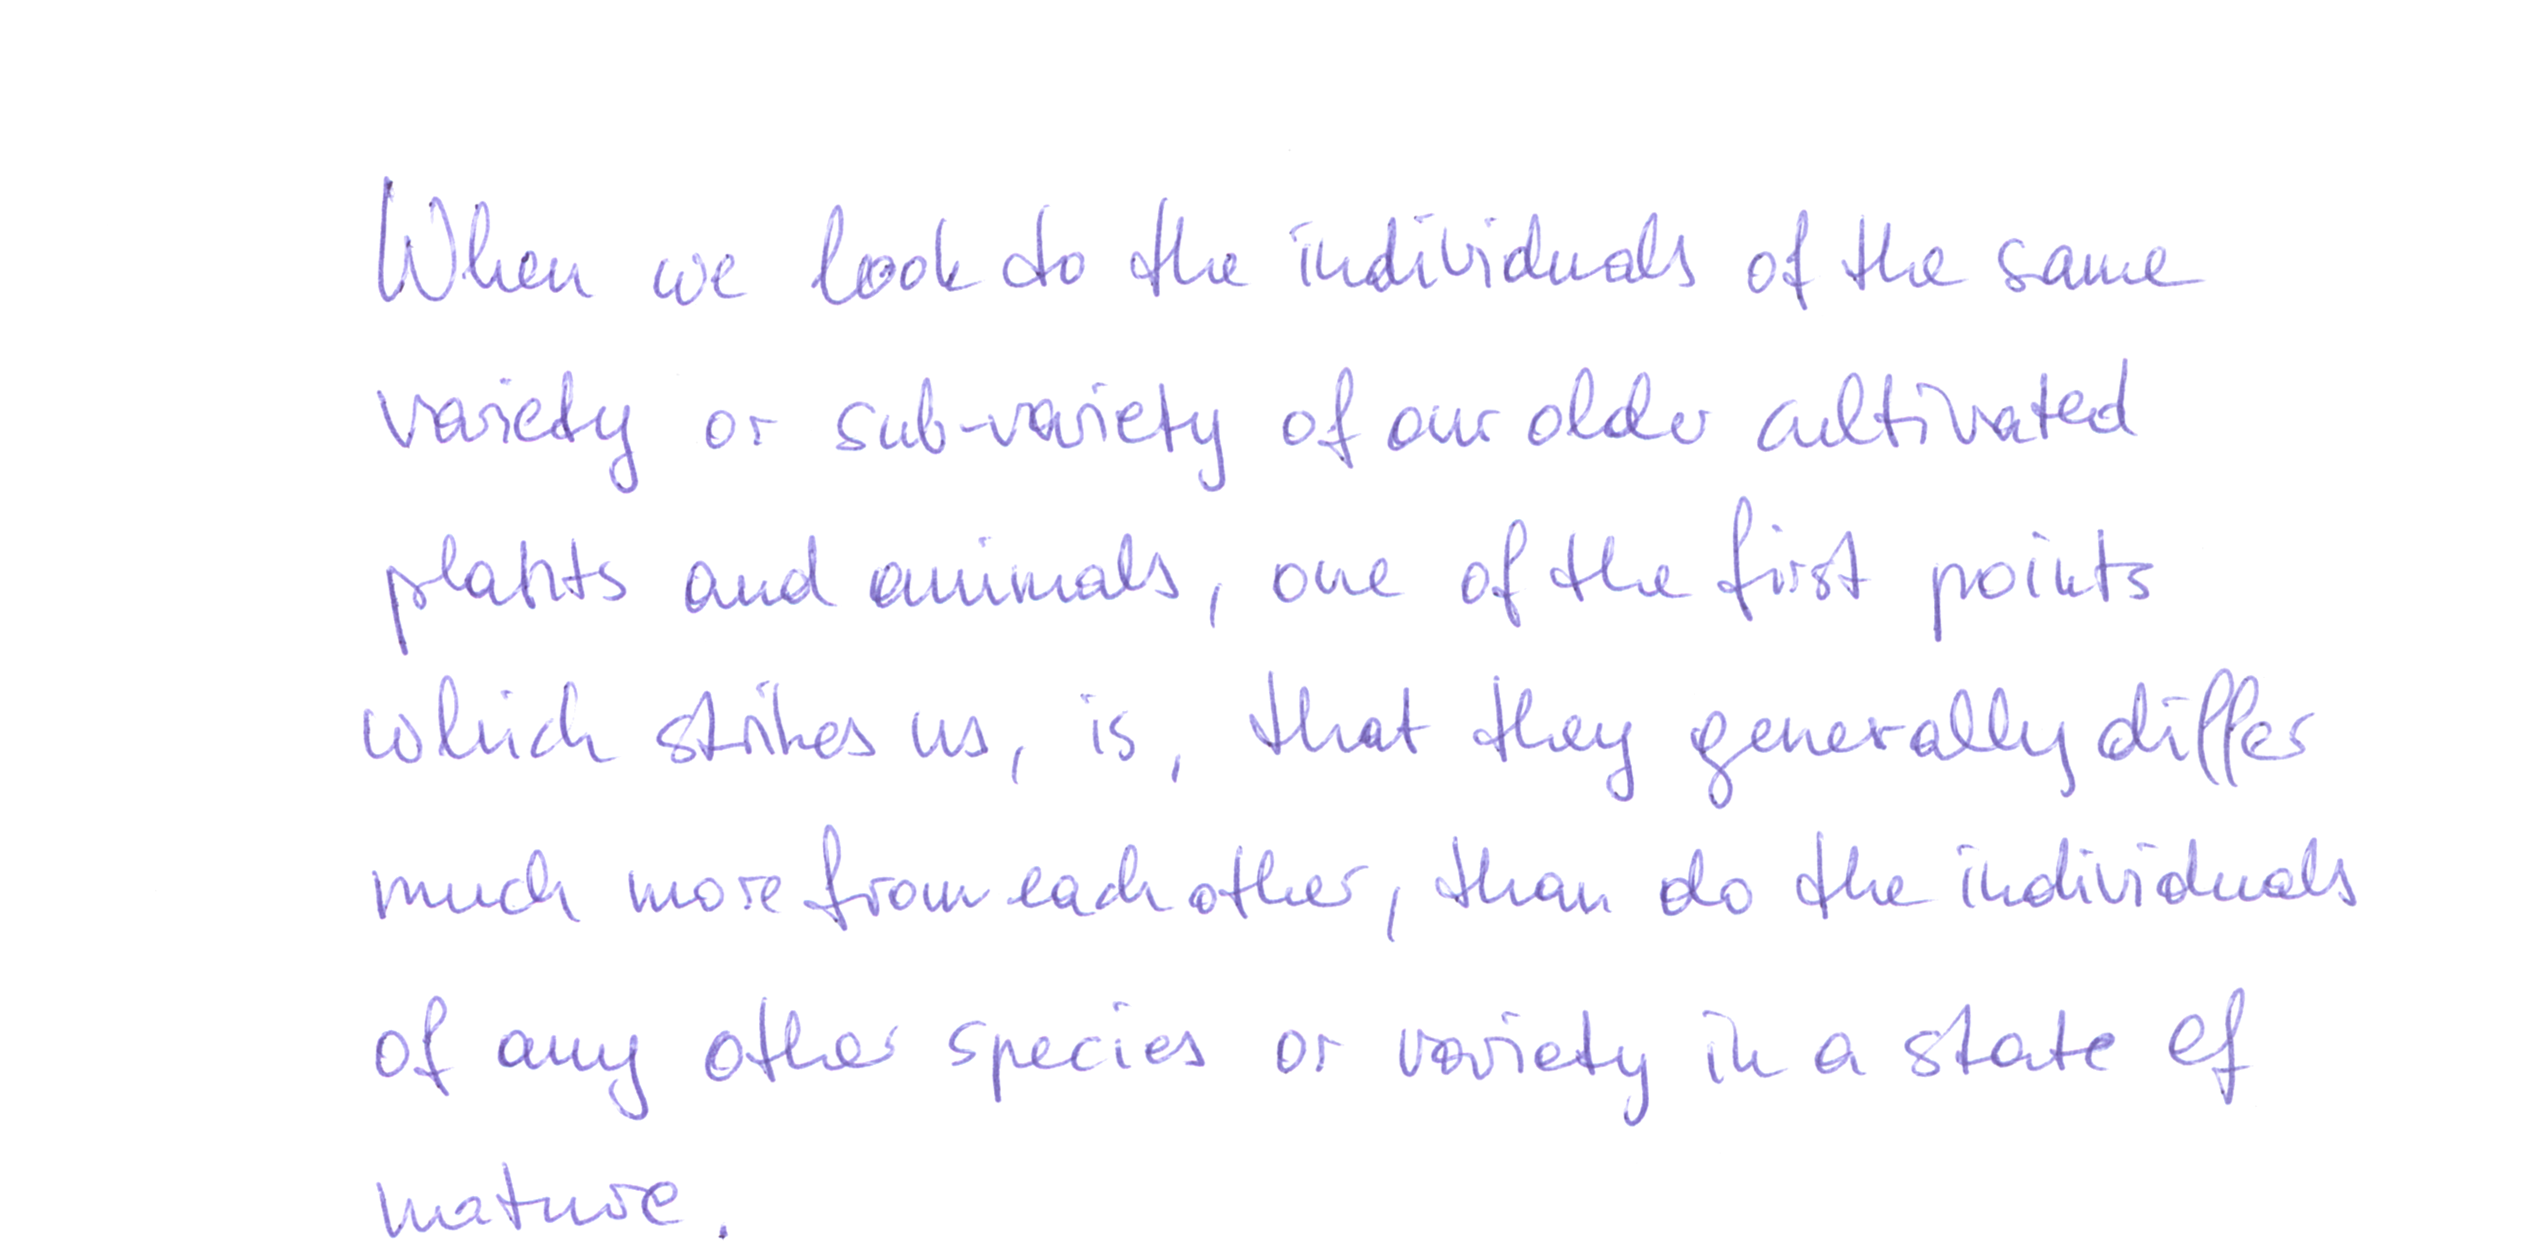 When we look to the individuals of the same
variety or sub-variety of our older cultivated
plants and animals, one of the first points
which strikes us, is, that they generally differ
much more from each other, than do the individuals
of any other species or variety in a state of
nature.